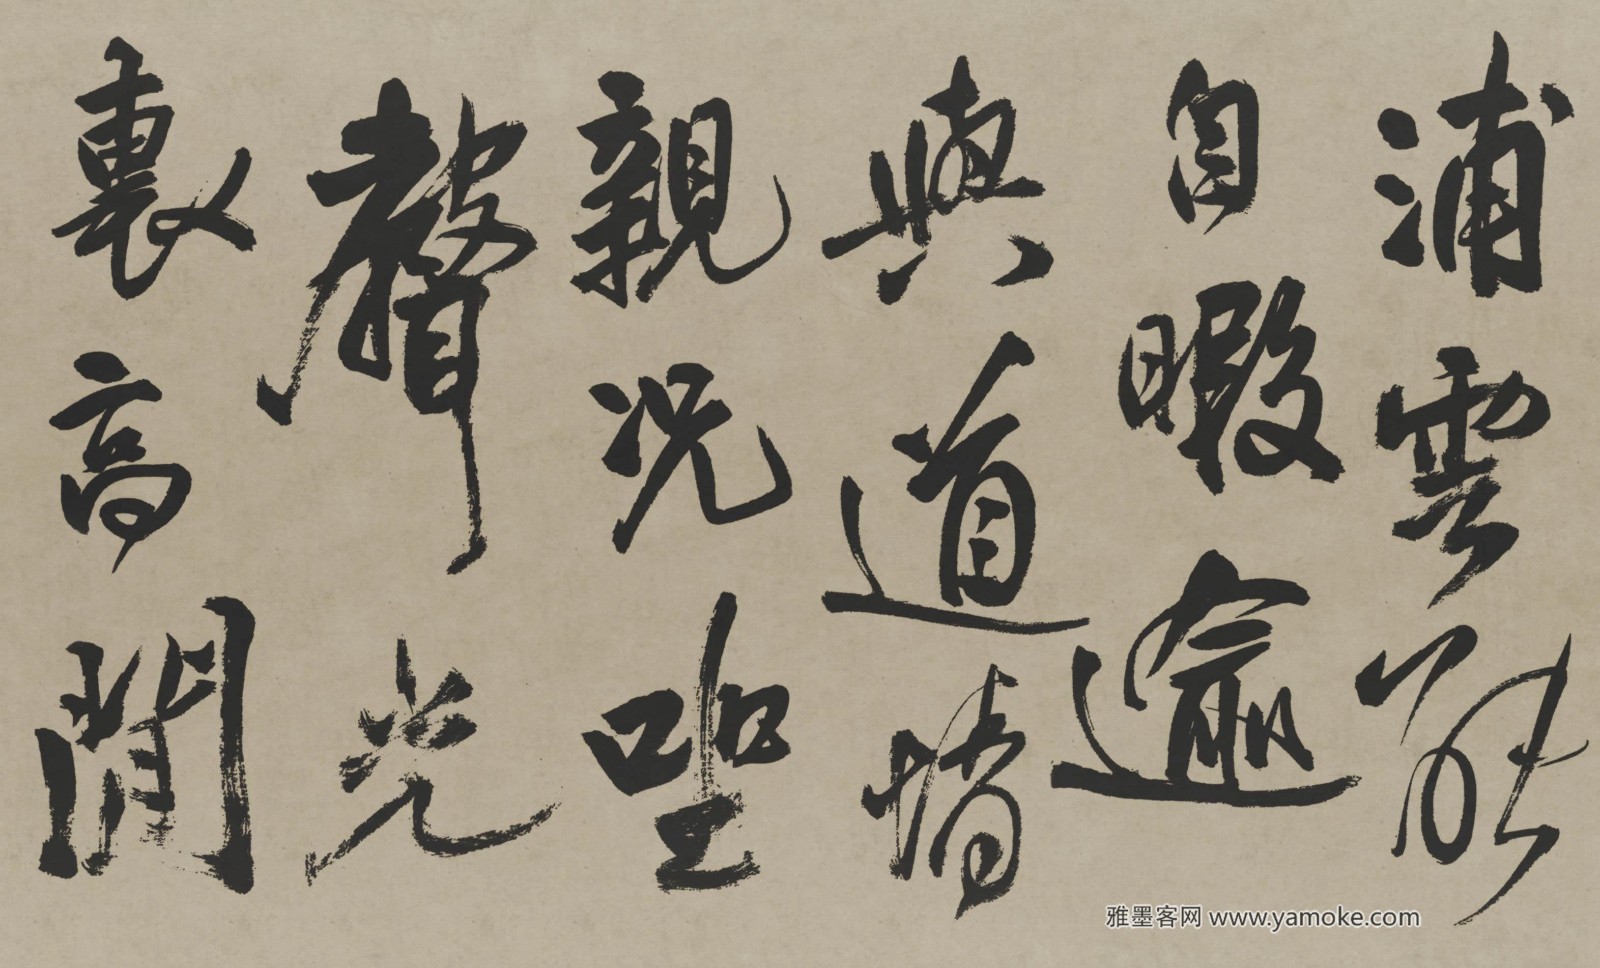 浦雲能
自暇逾
與道情
親況坐
聲光
裏高閒
雅墨客网 www.yamoke.com